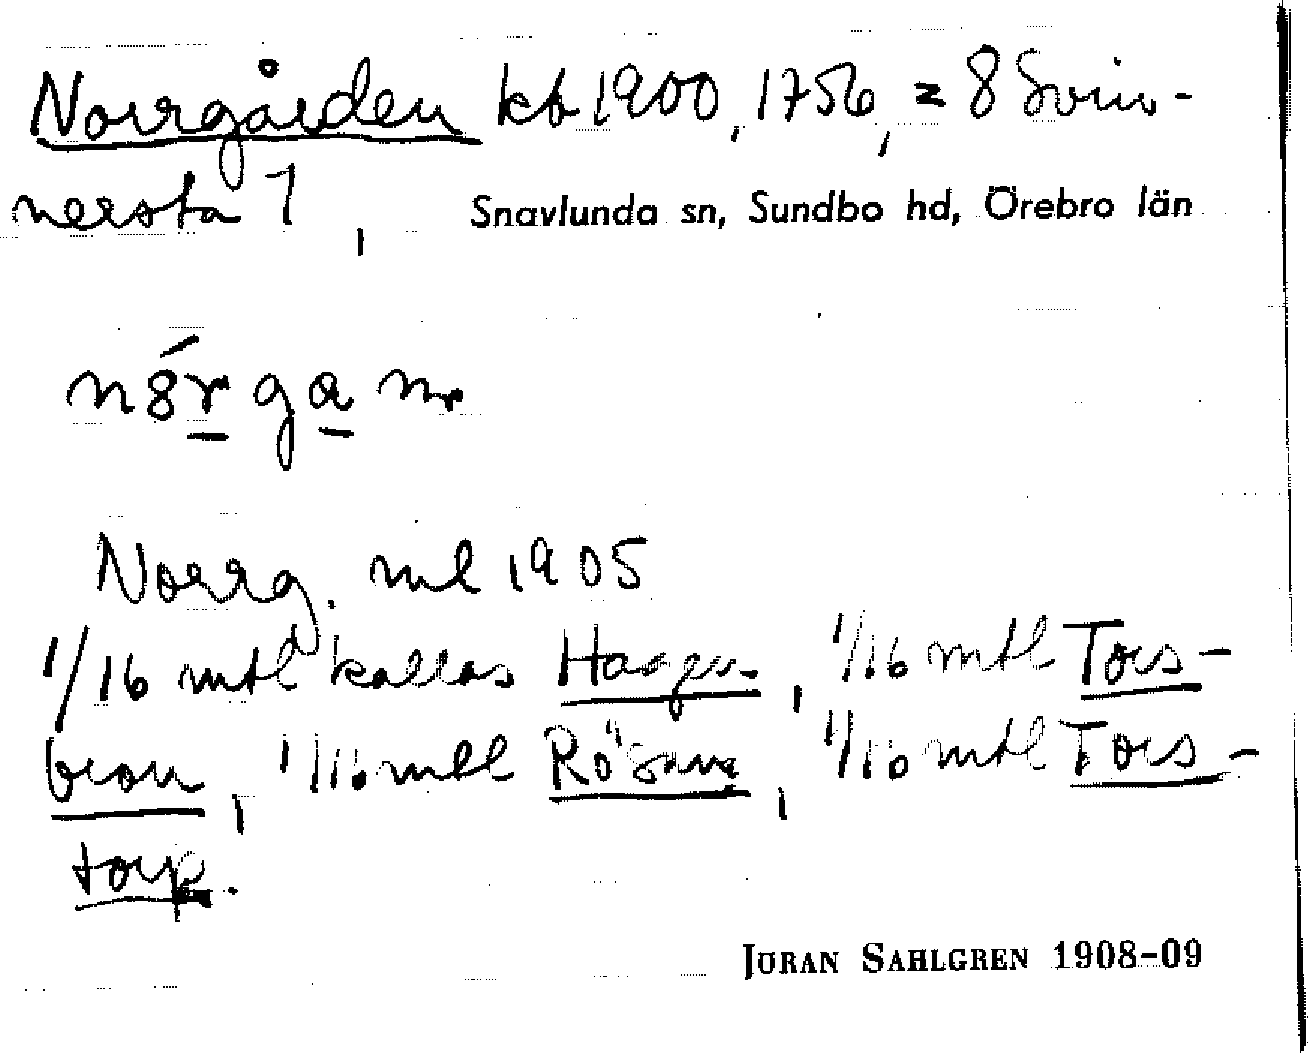 Norrgården kb 1900, 1756, = 8 Svin-
nersta 1, Snavlunda sn, Sundbo hd, Örebro län
Norrg. ml 1905
1/16 mtl kallas Hagen, 1/16 mtl Tors-
bron, 1/16 mtl Rösana, 1/16 mtl Tors-
torp.
JÖRAN SAHLGREN 1908-09